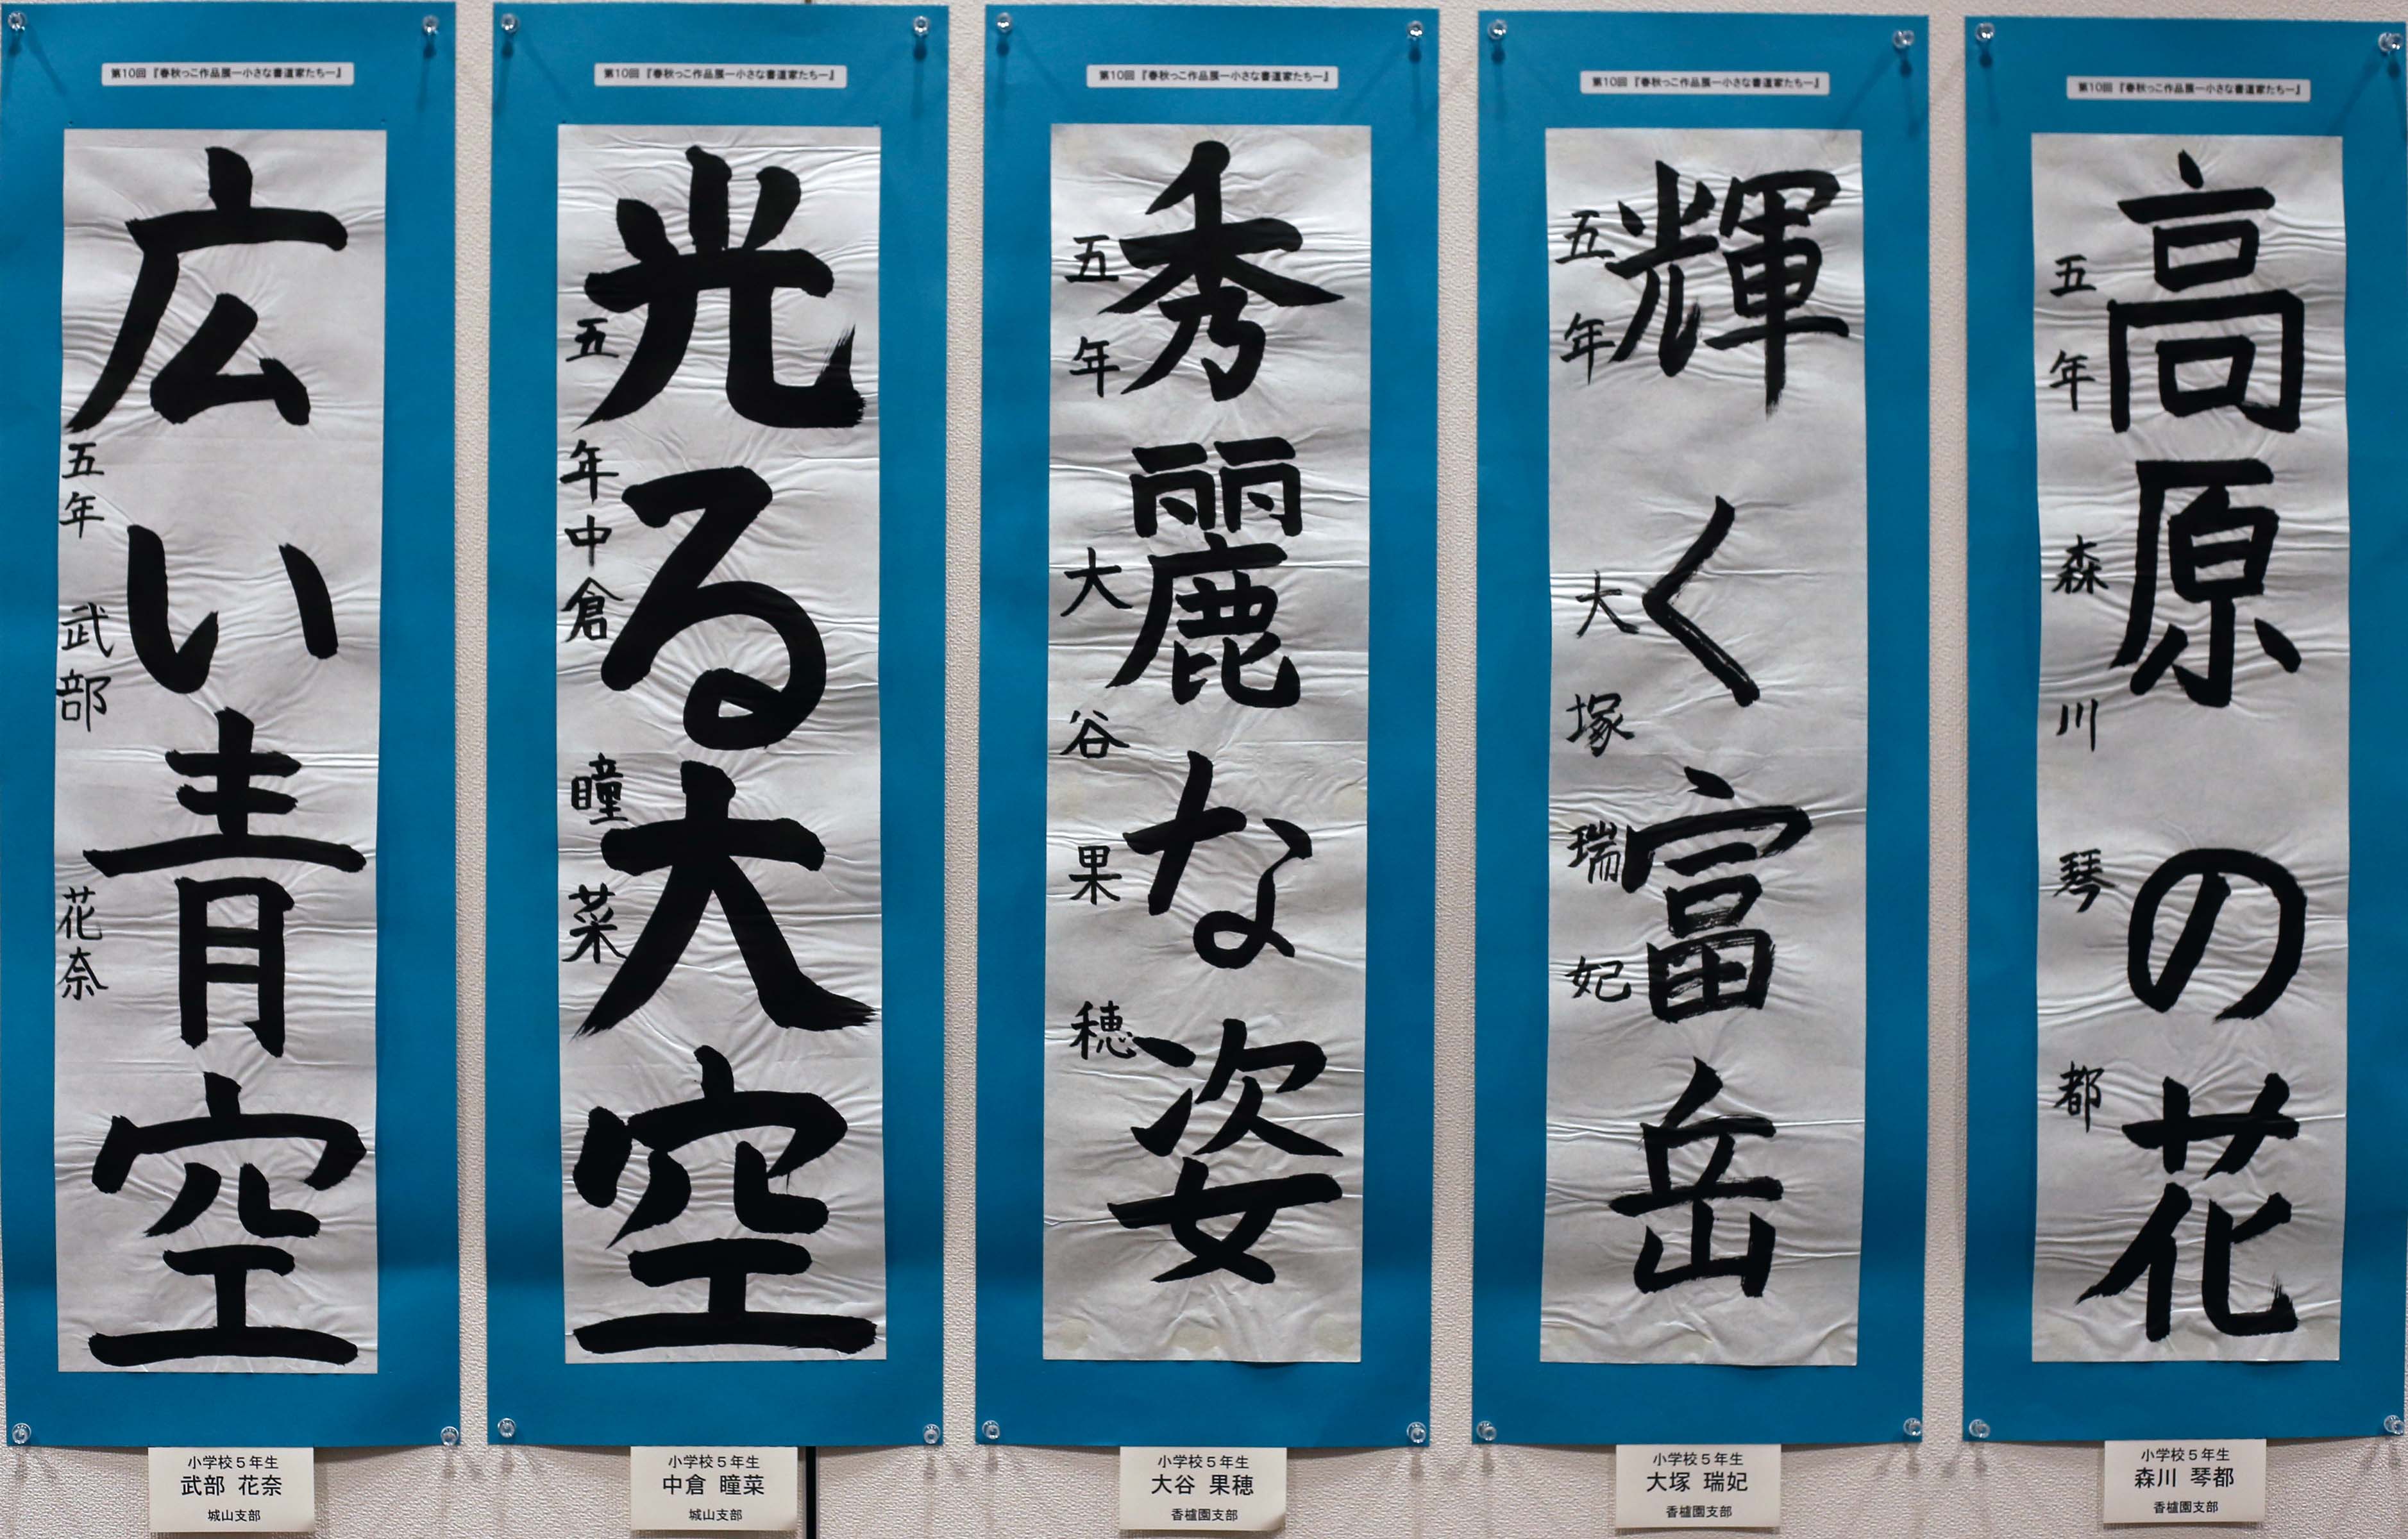 第10回『春秋っこ作品展ー小さな書道家たちー』
高原の花
五年 森川 琴都
小学校5年生
森川 琴都
香櫨園支部
第10回『春秋っこ作品展ー小さな書道家たちー』
輝く富岳
五年 大塚 瑞妃
小学校5年生
大塚 瑞妃
香櫨園支部
第10回『春秋っこ作品展ー小さな書道家たちー』
秀麗な姿
五年 大谷 果穂
小学校5年生
大谷 果穂
香櫨園支部
第10回『春秋っこ作品展ー小さな書道家たちー』
光る大空
五年 中倉 瞳菜
小学校5年生
中倉 瞳菜
城山支部
第10回『春秋っこ作品展ー小さな書道家たちー』
広い青空
五年 武部 花奈
小学校5年生
武部 花奈
城山支部